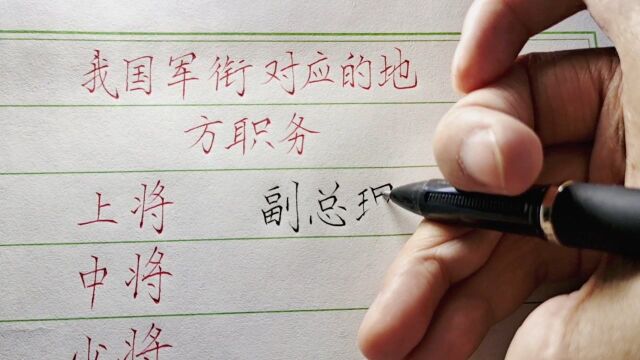 我国军衔对应的地
方职务
上将 副总
中将
少将